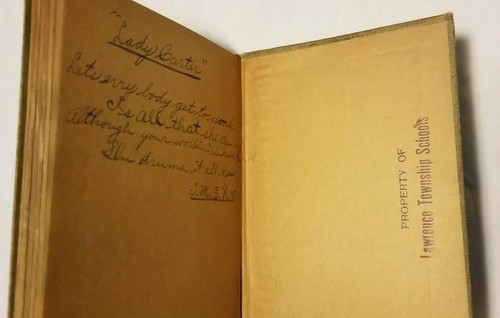 "Lady Carter"
Lets evry body get to work
Its all that she
Although your workin
She drums it all
PROPERTY OF
Lawrence Township Schools